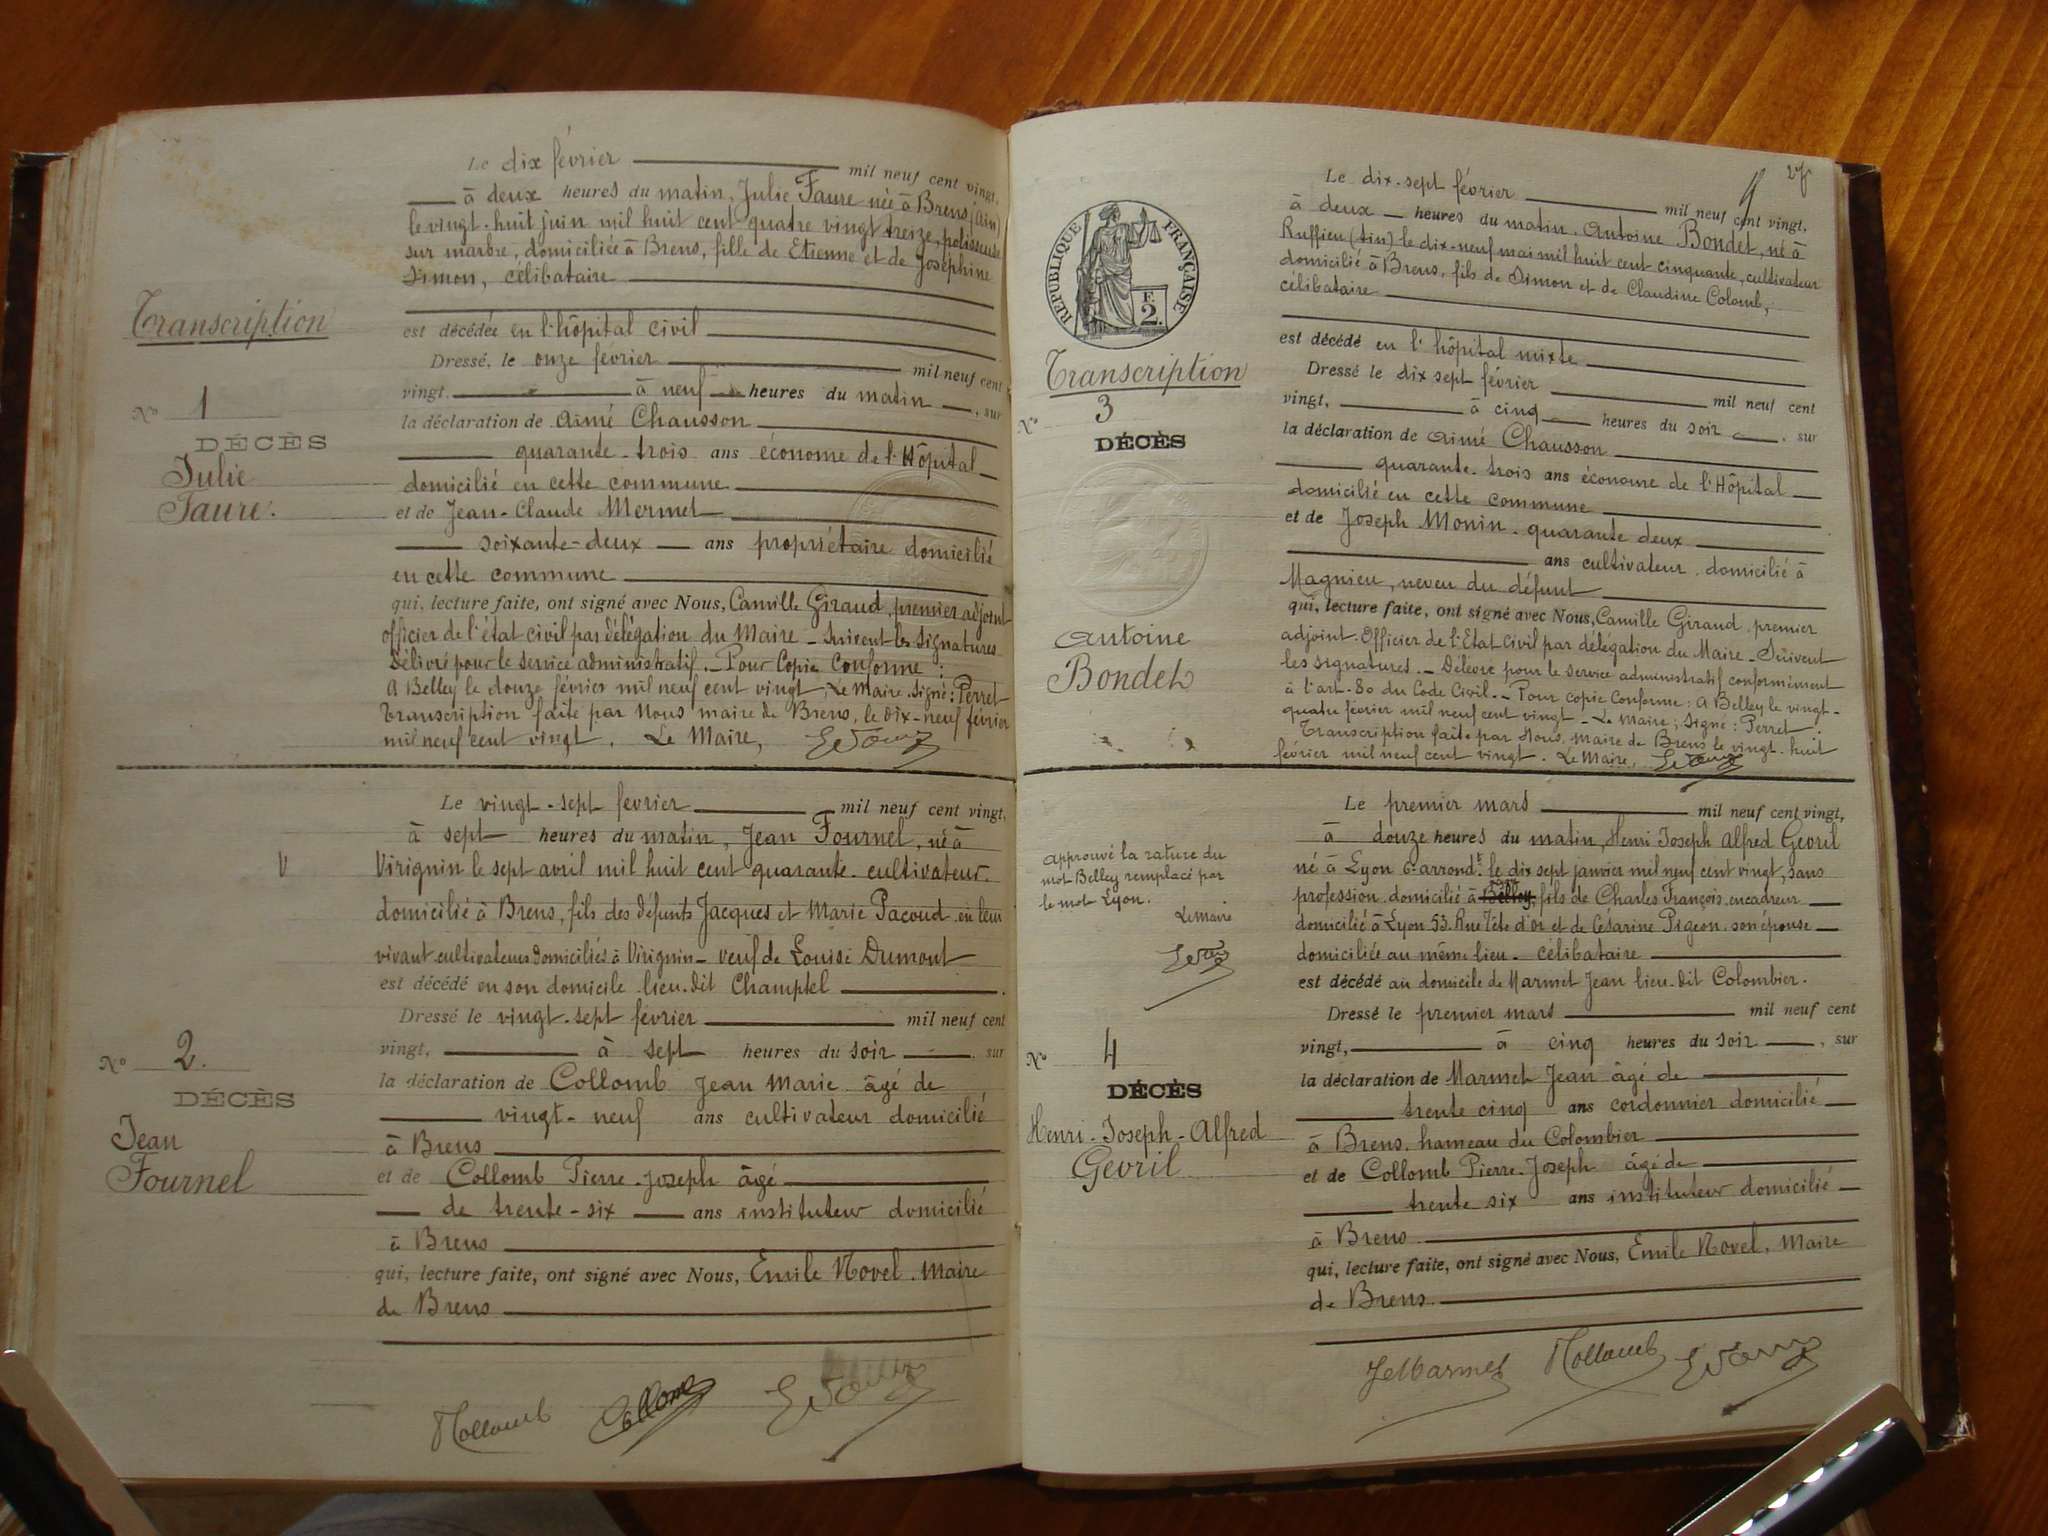 Transcription
N° 1
DÉCÈS
Julie
Faure.
Le dix février mil neuf cent vingt,
à deux heures du matin, Julie Faure née à Brens (Ain)
le vingt-huit juin mil huit cent quatre vingt treize, polisseuse
sur marbre, domiciliée à Brens, fille de Etienne et de Joséphine
Simon, célibataire
est décédée en l'hôpital civil
Dressé, le onze février mil neuf cent
vingt, à neuf heures du matin, sur
la déclaration de Aimé Chausson
quarante-trois ans économe de l'Hôpital
domicilié en cette commune
et de Jean-Claude Mermet
soixante-deux ans propriétaire domicilié
en cette commune
qui, lecture faite, ont signé avec Nous, Camille Giraud, premier adjoint
officier de l'état civil par délégation du Maire – Suivent les signatures
Délivré pour le service administratif. – Pour Copie Conforme :
A Belley le douze février mil neuf cent vingt, Le Maire, signé : Perret
Transcription faite par Nous maire de Brens, le dix-neuf février
mil neuf cent vingt. Le Maire,
V
N° 2.
DÉCÈS
Jean
Fournel
Le vingt-sept février mil neuf cent vingt,
à sept heures du matin, Jean Fournel, né à
Virignin le sept avril mil huit cent quarante. cultivateur.
domicilié à Brens, fils des défunts Jacques et Marie Pacoud en leur
vivant cultivateurs domiciliés à Virignin – veuf de Louise Dumont
est décédé en son domicile lieu-dit Champtel
Dressé le vingt-sept février mil neuf cent
vingt, à sept heures du soir, sur
la déclaration de Collomb Jean Marie âgé de
vingt-neuf ans cultivateur domicilié
à Brens
et de Collomb Pierre-Joseph âgé
de trente-six ans instituteur domicilié
à Brens
qui, lecture faite, ont signé avec Nous, Emile Novel. Maire
de Brens
RÉPUBLIQUE FRANÇAISE
F.
2.
Transcription
N° 3
DÉCÈS
Antoine
Bondet
Le dix-sept février mil neuf cent vingt,
à deux heures du matin, Antoine Bondet, né à
Ruffieu (Ain) le dix-neuf mai mil huit cent cinquante, cultivateur
domicilié à Brens, fils de Simon et de Claudine Colomb,
célibataire
est décédé en l'hôpital mixte
Dressé le dix sept février mil neuf cent
vingt, à cinq heures du soir, sur
la déclaration de Aimé Chausson
quarante-trois ans économe de l'Hôpital
domicilié en cette commune
et de Joseph Monin. quarante deux
ans cultivateur, domicilié à
Magnieu, neveu du défunt
qui, lecture faite, ont signé avec Nous, Camille Giraud, premier
adjoint. Officier de l'Etat Civil par délégation du Maire – Suivent
les signatures. – Délivré pour le service administratif conformément
à l'art. 80 du Code Civil. – Pour copie conforme : A Belley le vingt-
quatre février mil neuf cent vingt – Le Maire ; Signé : Perret.
Transcription faite par Nous, Maire de Brens le vingt-huit
février mil neuf cent vingt. Le Maire,
Approuvé la rature du
mot Belley remplacé par
le mot Lyon.
Le Maire
N° 4
DÉCÈS
Henri-Joseph-Alfred
Gevril
Le premier mars mil neuf cent vingt,
à douze heures du matin, Henri Joseph Alfred Gevril
né à Lyon 6e arrondt. le dix sept janvier mil neuf cent vingt, sans
profession domicilié à Belley, Lyon fils de Charles François encadreur
domicilié à Lyon 53. Rue Tête d'or et de Césarine Pigeon. son épouse
domiciliée au même lieu – célibataire
est décédé au domicile de Marmet Jean lieu-dit Colombier.
Dressé le premier mars mil neuf cent
vingt, à cinq heures du soir, sur
la déclaration de Marmet Jean âgé de
trente cinq ans cordonnier domicilié
à Brens, hameau du Colombier
et de Collomb Pierre-Joseph âgé de
trente six ans instituteur domicilié
à Brens
qui, lecture faite, ont signé avec Nous, Emile Novel, Maire
de Brens.